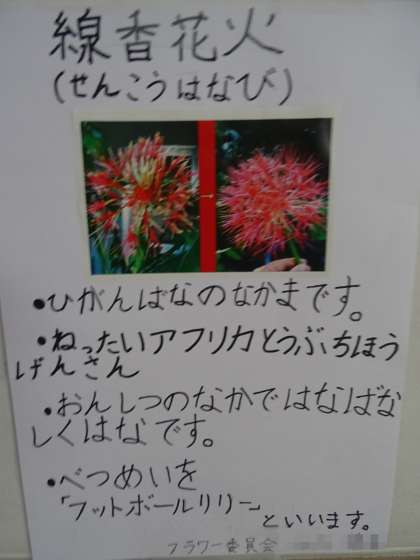 線香花火
(せんこうはなび)
•ひがんばなのなかまです。
•ねったいアフリカとうぶちほう
げんさん
•おんしつのなかではなばな
しくはなです。
•べつめいを
「フットボールリリー」
といいます。
フラワー委員会